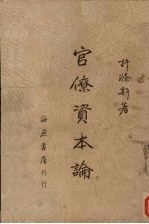 許滌新著
官僚資本論
海燕書店刊行